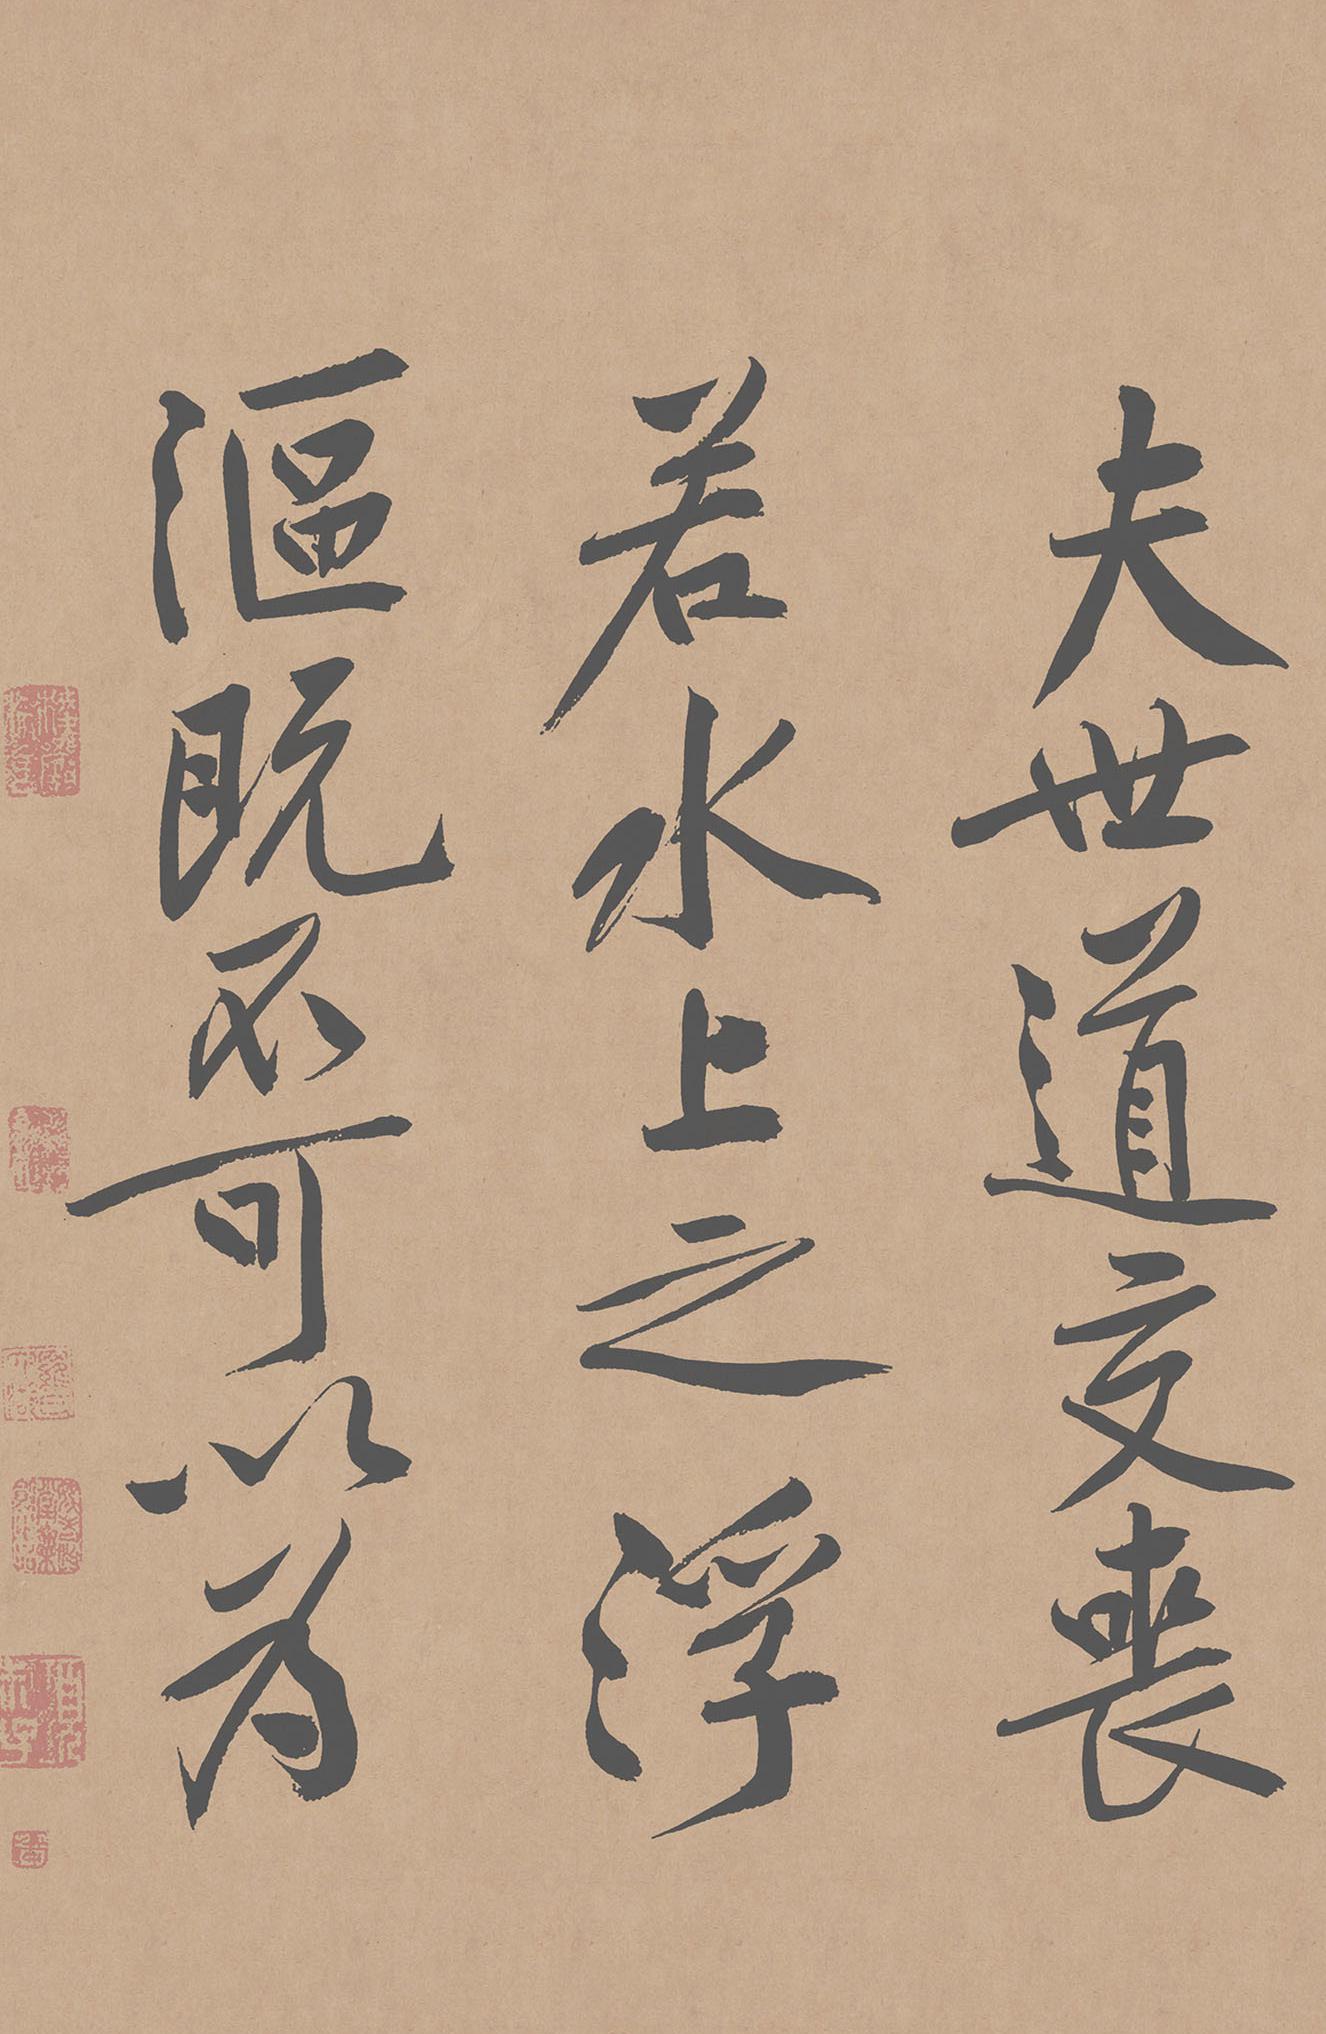 夫世道交喪
若水上之浮
漚既不可以為